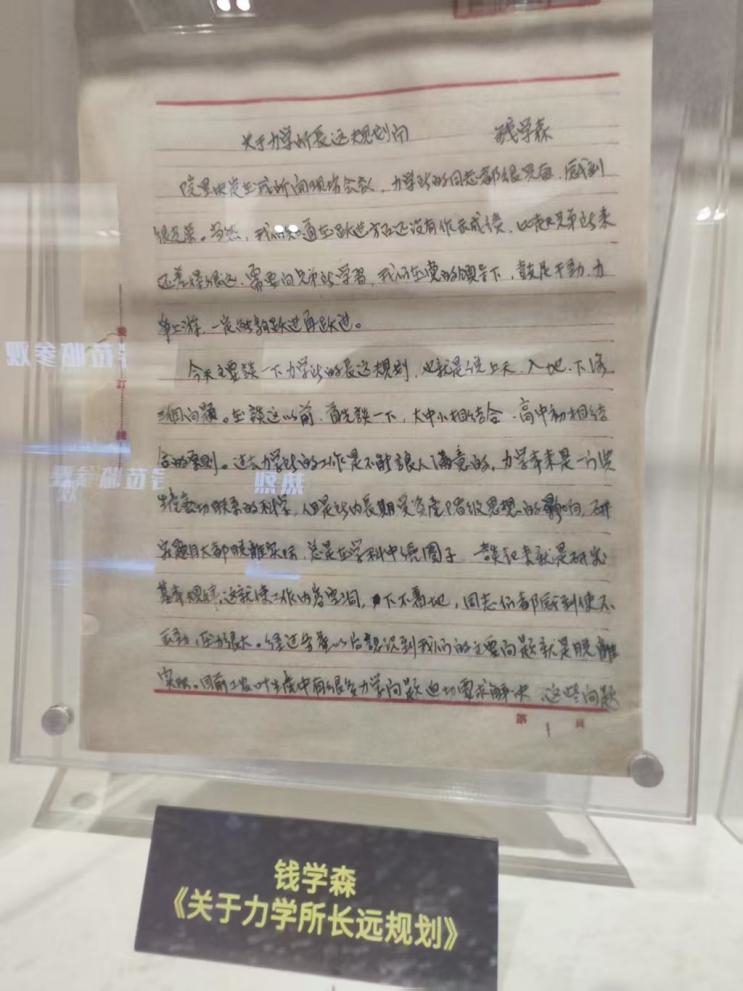 关于力学所长远规划问 钱学森
院里决定在我所开现场会议，力学所的同志都很兴奋，感到
很光荣。当然，我们知道在跃进方面还没有作出成绩，比起兄弟所来
还差得很远，需要向兄弟所学习，我们在党的领导下，鼓足干劲，力
争上游，一定能够跃进再跃进。
今天主要谈一下力学所的长远规划，也就是说上天、入地、下海
三个问题。在谈这以前，首先谈一下，大中小相结合、高中初相结
合的原则。过去力学所的工作是不能很人满意的，力学本来是一门
生产密切联系的科学，但是所内长期受资产阶级思想的影响，研
究题目大都脱离实际，总是在学科中绕圈子，一谈起来就是研究
基本规律，这就使工作内容空洞，下不着地，同志们都感到使不
上劲，压力很大。经过务虚以后认识到我们的主要问题就是脱离
实际。目前工农业生产中有很多力学问题迫切要求解决，这些问题
第 1 页
装 订 线
钱学森
《关于力学所长远规划》
莅临参观
莅临参观